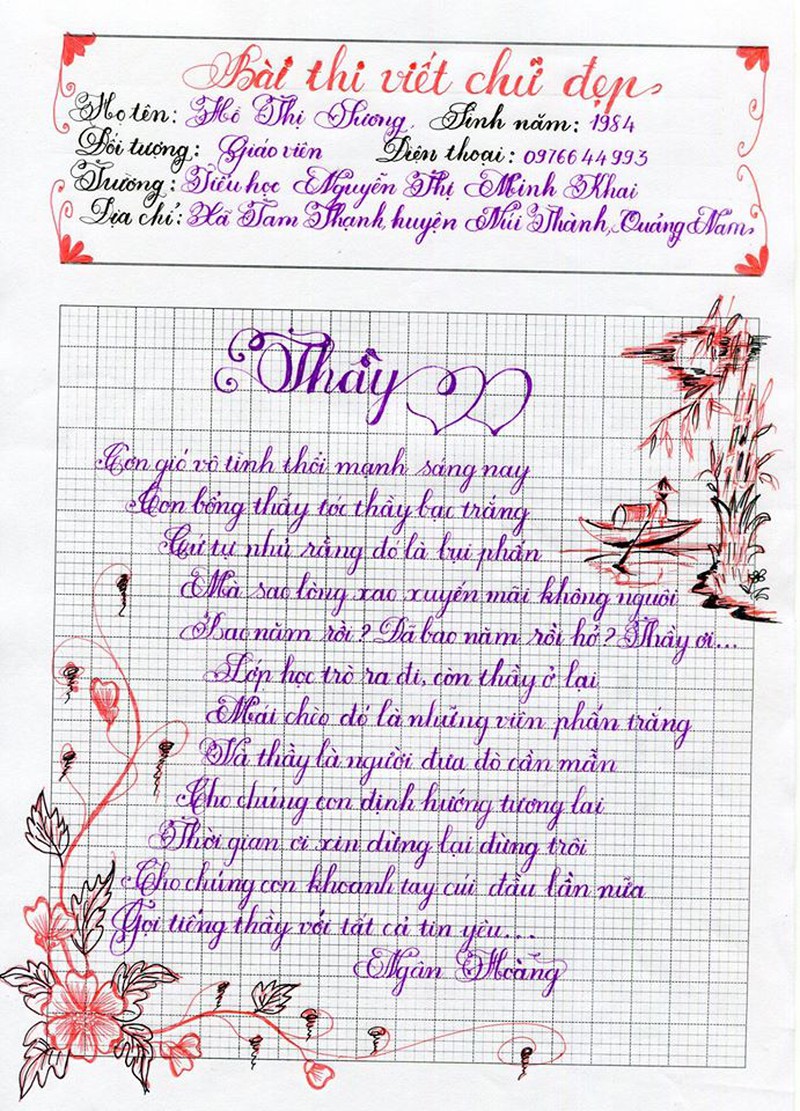 Bài thi viết chữ đẹp
Họ tên: Hồ Thị Sương. Sinh năm: 1984
Đối tượng: Giáo viên Điện thoại: 0976644993
Trường: Tiểu học Nguyễn Thị Minh Khai
Địa chỉ: Xã Tam Thạnh, huyện Núi Thành, Quảng Nam
Thầy
Cơn gió vô tình thổi mạnh sáng nay
Con bỗng thấy tóc thầy bạc trắng
Cứ tự nhủ rằng đó là bụi phấn
Mà sao lòng xao xuyến mãi không nguôi
Bao năm rồi? Đã bao năm rồi hở? Thầy ơi...
Lớp học trò ra đi, còn thầy ở lại
Mái chèo đó là những viên phấn trắng
Và thầy là người đưa đò cần mẫn
Cho chúng con định hướng tương lai
Thời gian ơi xin dừng lại đừng trôi
Cho chúng con khoanh tay cúi đầu lần nữa
Gọi tiếng thầy với tất cả tin yêu...
Ngân Hoàng